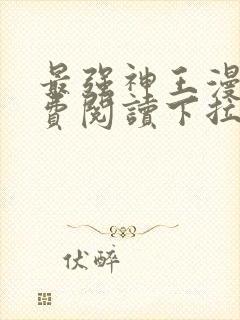 最強神王漫
費閱讀下拉
伏醉